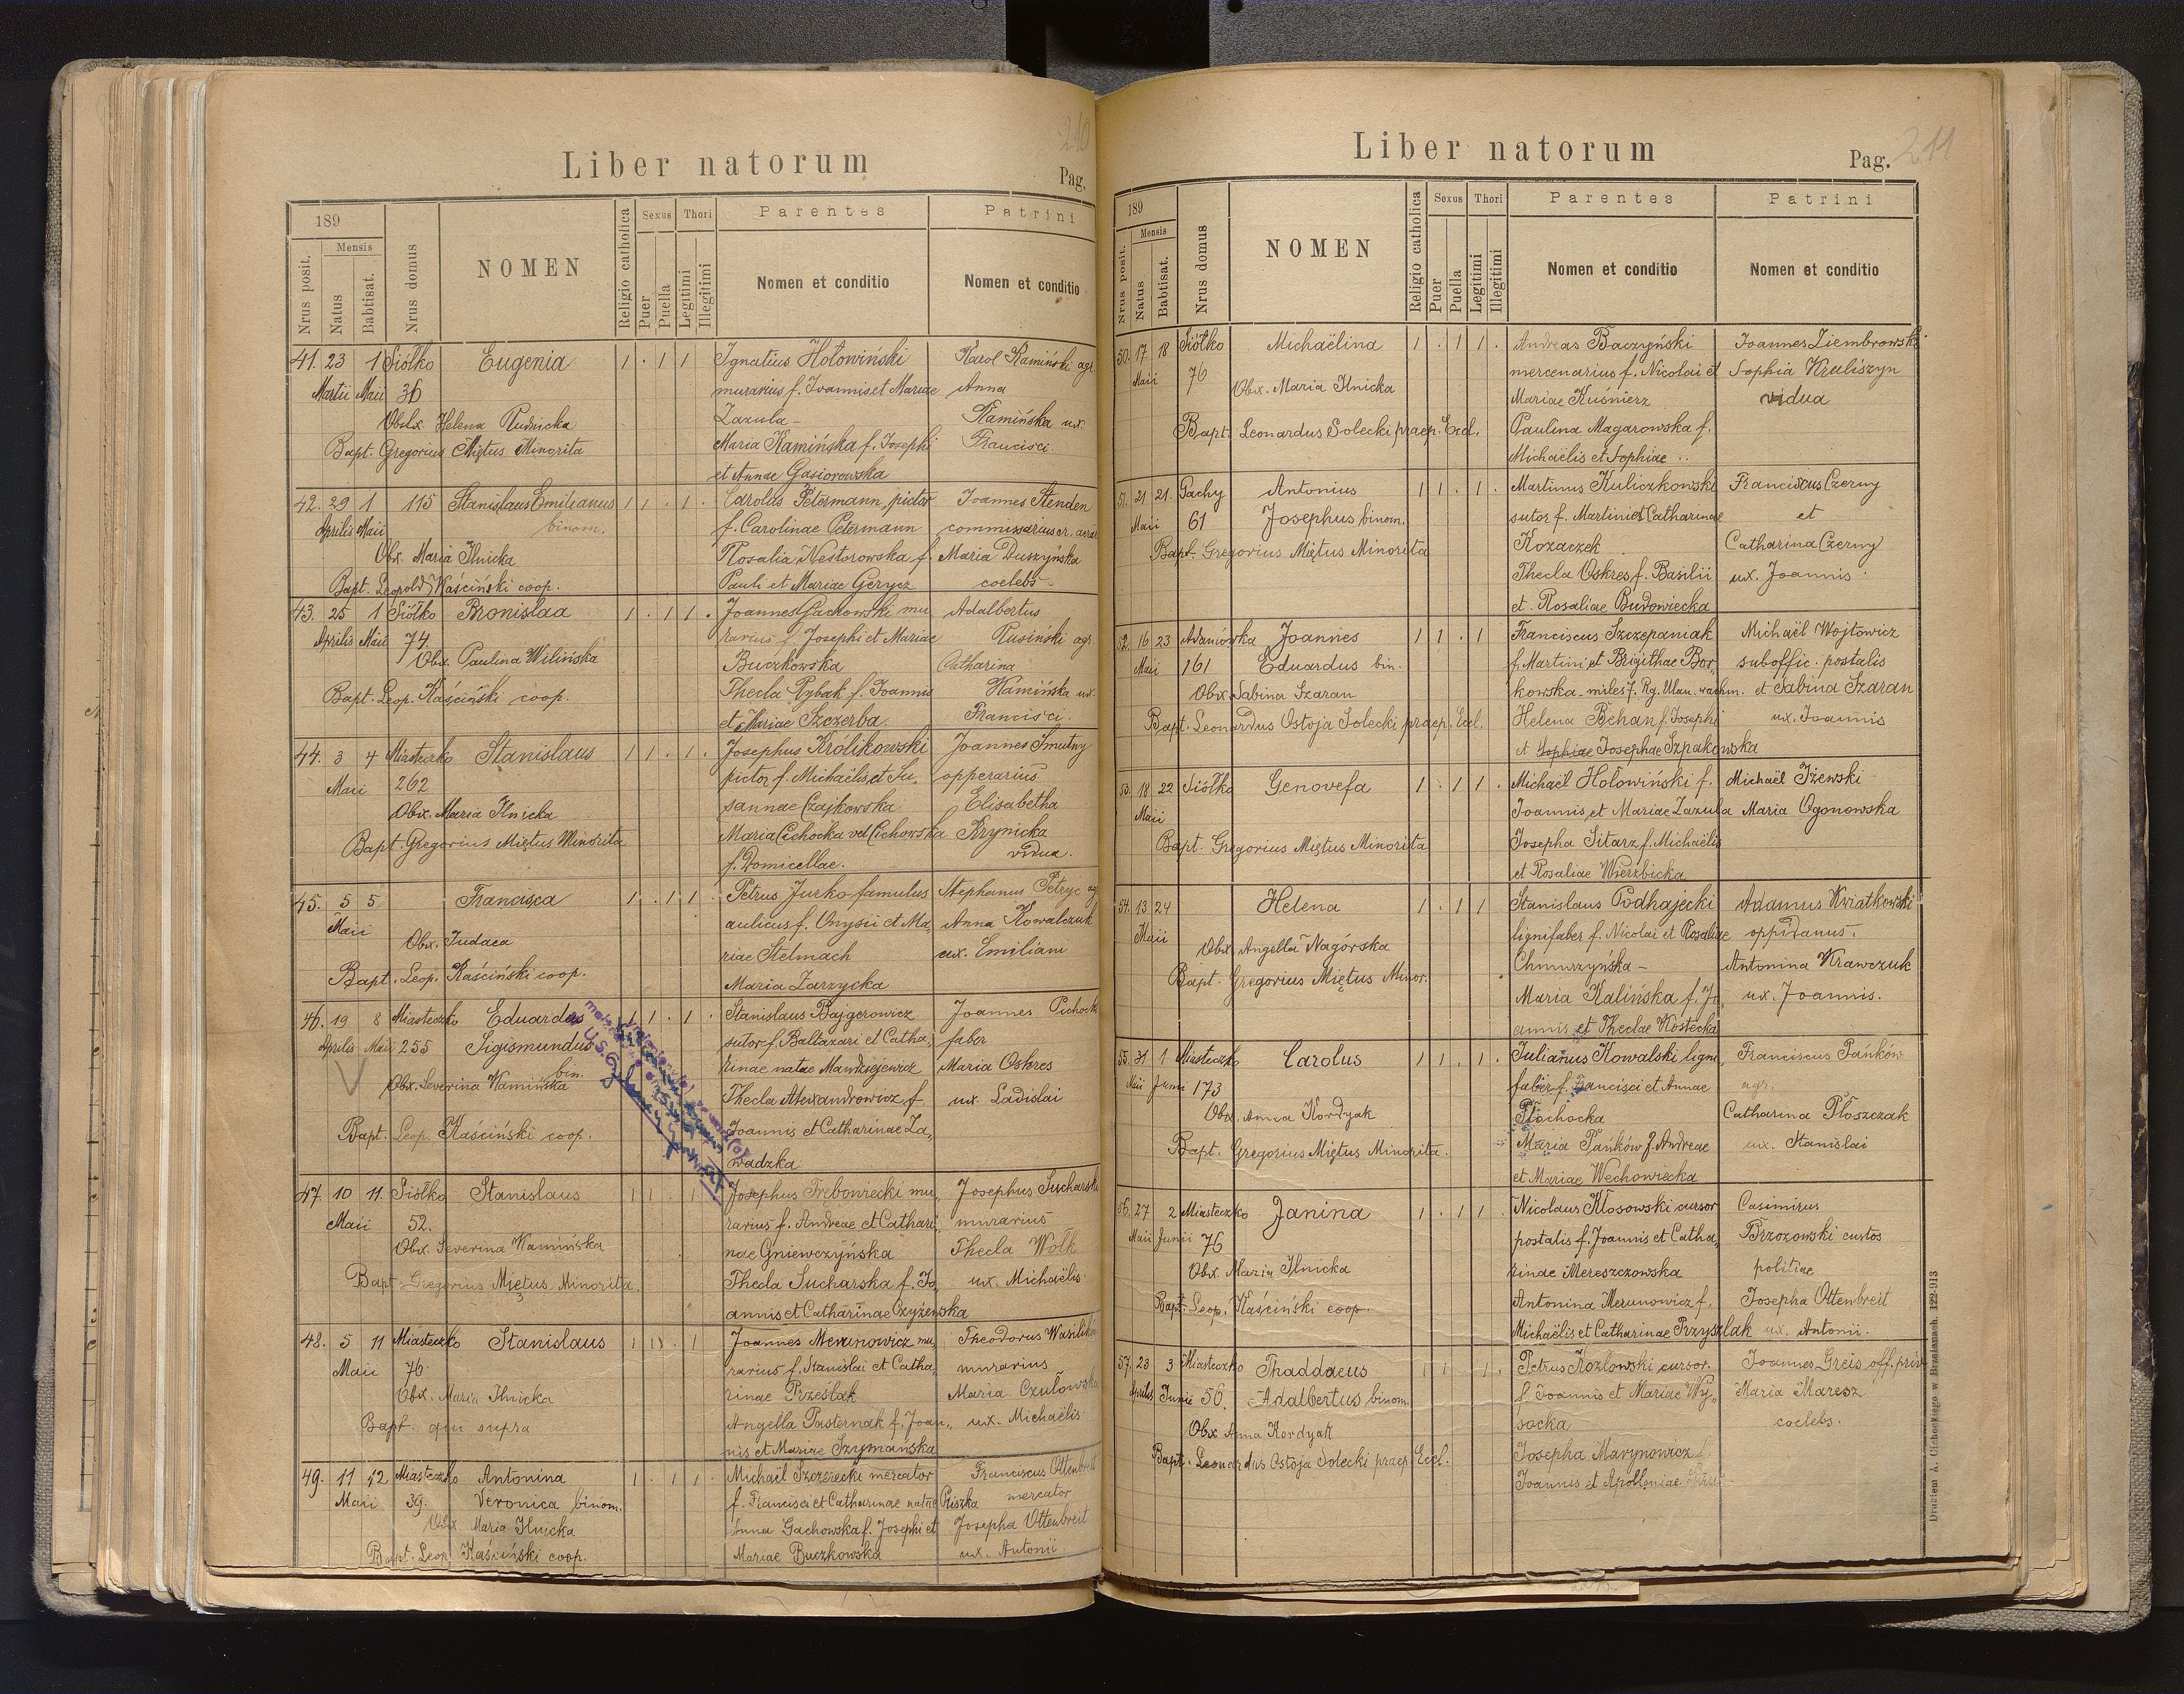 210
Liber natorum
Pag.
189
Mensis
Nrus posit.
Natus
Babtisat.
Nrus domus
NOMEN
Religio catholica
Sexus
Puer
Puella
Thori
Legitimi
Illegitimi
Parentes
Nomen et conditio
Patrini
Nomen et conditio
41. 23 1 Siółko Eugenia 1 . 1 1 Ignatius Hołowiński Karol Kamiński agr.
Martii Maii 36 murarius f. Joannis et Mariae Anna
Obstx. Helena Rudnicka Zazula – Kamińska ux.
Bapt. Gregorius Miętus Minorita Maria Kamińska f. Josephi Francisci.
et Annae Gasiorowska
42. 29 1 115 Stanislaus Emilianus 1 1 . 1 . Carolus Petermann, pictor Joannes Stenden
Aprilis Maii binom. f. Carolinae Petermann commissarius
Obx. Maria Ilnicka Rosalia Nestorowska f. Maria Duszyńska
Bapt. Leopold Kaściński coop. Pauli et Mariae Gerycz coelebs –
43. 25 1 Siółko Bronislaa 1 . 1 1 . Joannes Gachowski mu Adalbertus
Aprilis Maii 74. rarius f. Josephi et Mariae Rusiński agr.
Obx. Paulina Wilińska Buczkowska Catharina
Bapt. Leop. Kaściński coop. Thecla Rybak f. Joannis Kamińska ux.
et Mariae Szczerba Francisci.
44. 3 4 Miasteczko Stanislaus 1 1 . 1 . Josephus Królikowski Joannes Smutny
Maii 262 pictor f. Michaëlis et Su„ opperarius
Obx. Maria Ilnicka sannae Czajkowska Elisabetha
Bapt. Gregorius Miętus Minorita Maria Cichocka vel Cichowska Krynicka
f. Domicellae. vidua.
45. 5 5 Francisca 1 . 1 1 . Petrus Jurko famulus Stephanus Petryc
Maii aulicus f. Onysii et Ma„ Anna Kowalczuk
Obx. Judaea riae Stelmach ux. Emiliani
Bapt. Leop. Kaściński coop. Maria Zarzycka
46. 19 8 Miasteczko Eduardus 1 1 . 1 . Stanislaus Bajgerowicz Joannes
Aprilis Maii 255 Sigismundus sutor f. Baltazari et Catha„ faber
bin. rinae natae Mandziejewicz Maria Oskres
Obx. Severina Kamińska Thecla Alexandrowicz f. ux. Ladislai
Bapt. Leop. Kaściński coop. Joannis et Catharinae Za„
wadzka
47. 10 11. Siółko Stanislaus 1 1 . 1 Josephus Trębowiecki mu„ Josephus Sucharski
Maii 52. rarius f. Andreae et Cathari„ murarius
Obx. Severina Kamińska nae Gniewczyńska Thecla Wolk
Bapt. Gregorius Miętus Minorita. Thecla Sucharska f. Jo„ ux. Michaëlis
annis et Catharinae Czyżewska
48. 5 11 Miasteczko Stanislaus 1 1 . 1 Joannes Merunowicz mu„ Theodorus
Maii 76 rarius f. Stanislai et Catha„ murarius
Obx. Maria Ilnicka rinae Prześlak Maria Czułowska
Bapt. qui supra Angella Pasternak f. Joan„ ux. Michaëlis
nis et Mariae Szymańska
49. 11 12 Miasteczko Antonina 1 . 1 1 . Michaël Szczerecki mercator Franciscus Ottenbreit
Maii 39. Veronica binom. f. Francisci et Catharinae natae Pliszka mercator
Obx. Maria Ilnicka Anna Gachowska f. Josephi et Josepha Ottenbreit
Bapt. Leop. Kaściński coop. Mariae Buczkowska ux. Antonii.
Liber natorum
Pag. 211
189
Mensis
Nrus posit.
Natus
Babtisat.
Nrus domus
NOMEN
Religio catholica
Sexus
Puer
Puella
Thori
Legitimi
Illegitimi
Parentes
Nomen et conditio
Patrini
Nomen et conditio
50. 17 18 Siółko Michaëlina 1 . 1 1 . Andreas Baczyński Joannes Ziembrowski
Maii 76 mercenarius f. Nicolai et Sophia Kruliszyn
Obx. Maria Ilnicka Mariae Kuśnierz vidua
Bapt. Leonardus Solecki praep. Eccl. Paulina Magarowska f.
Michaëlis et Sophiae ..
51. 21 21. Pachy Antonius 1 1 . 1 . Martinus Kuliczkowski Franciscus Czerny
Maii 61 Josephus binom. sutor f. Martini et Catharinae et
Bapt. Gregorius Miętus Minorita Kozaczek Catharina Czerny
Thecla Oskres f. Basilii ux. Joannis
et Rosaliae Budowiecka
52. 16 23 Adamówka Joannes 1 1 . 1 Franciscus Szczepaniak Michaël Wojtowicz
Maii 161 Eduardus bin. f. Martini et Brigithae Bor„ suboffic. postalis
Obx. Sabina Szaran kowska. miles 7. Rg. Ulan. wachm. et Sabina Szaran
Bapt. Leonardus Ostoja Solecki praep. Eccl. Helena Behan f. Josephi ux. Joannis
et Sophiae Josephae Szpakowska
53. 18 22 Siółko Genovefa 1 . 1 1 . Michaël Hołowiński f. Michaël Iżewski
Maii Joannis et Mariae Zazula Maria Ogonowska
Bapt. Gregorius Miętus Minorita Josepha Sitarz f. Michaëlis
et Rosaliae Wierzbicka
54. 13 24 Helena 1 . 1 1 Stanislaus Podhajecki Adamus Kwiatkowski
Maii lignifaber f. Nicolai et Rosaliae oppidanus.
Obx. Angella Nagórska Chmurzyńska – Antonina Krawczuk
Bapt. Gregorius Miętus Minor. Maria Kalińska f. Jo„ ux. Joannis.
annis et Theclae Kostecka
55. 31 1 Miasteczko Carolus 1 1 . 1 . Julianus Kowalski ligni„ Franciscus Pańków
Maii Junii 173 faber f. Francisci et Annae agr.
Obx. Anna Kordyak Płochocka Catharina Płoszczak
Bapt. Gregorius Miętus Minorita. Maria Pańków f. Andreae ux. Stanislai
et Mariae Wechowiecka
56. 27 2 Miasteczko Janina 1 . 1 1 . Nicolaus Kłosowski cursor Casimirus
Maii Junii 76 postalis f. Joannis et Catha„ Brzozowski custos
Obx. Maria Ilnicka rinae Mereszczowska politiae
Bapt. Leop. Kaściński coop. Antonina Merunowicz f. Josepha Ottenbreit
Michaëlis et Catharinae Przyszlak ux. Antonii.
57. 23 3 Miasteczko Thaddaeus 1 1 1. Petrus Kozłowski cursor. Joannes Greis off. priv
Aprilis Junii 56. Adalbertus binom. f. Joannis et Mariae Wy„ Maria Maresz
Obx. Anna Kordyak socka coelebs.
Bapt. Leonardus Ostoja Solecki praep. Eccl. Josepha Marynowicz f.
Joannis et Apolloniae
Drukiem A. Cichockiego w Brzeżanach. 122-913